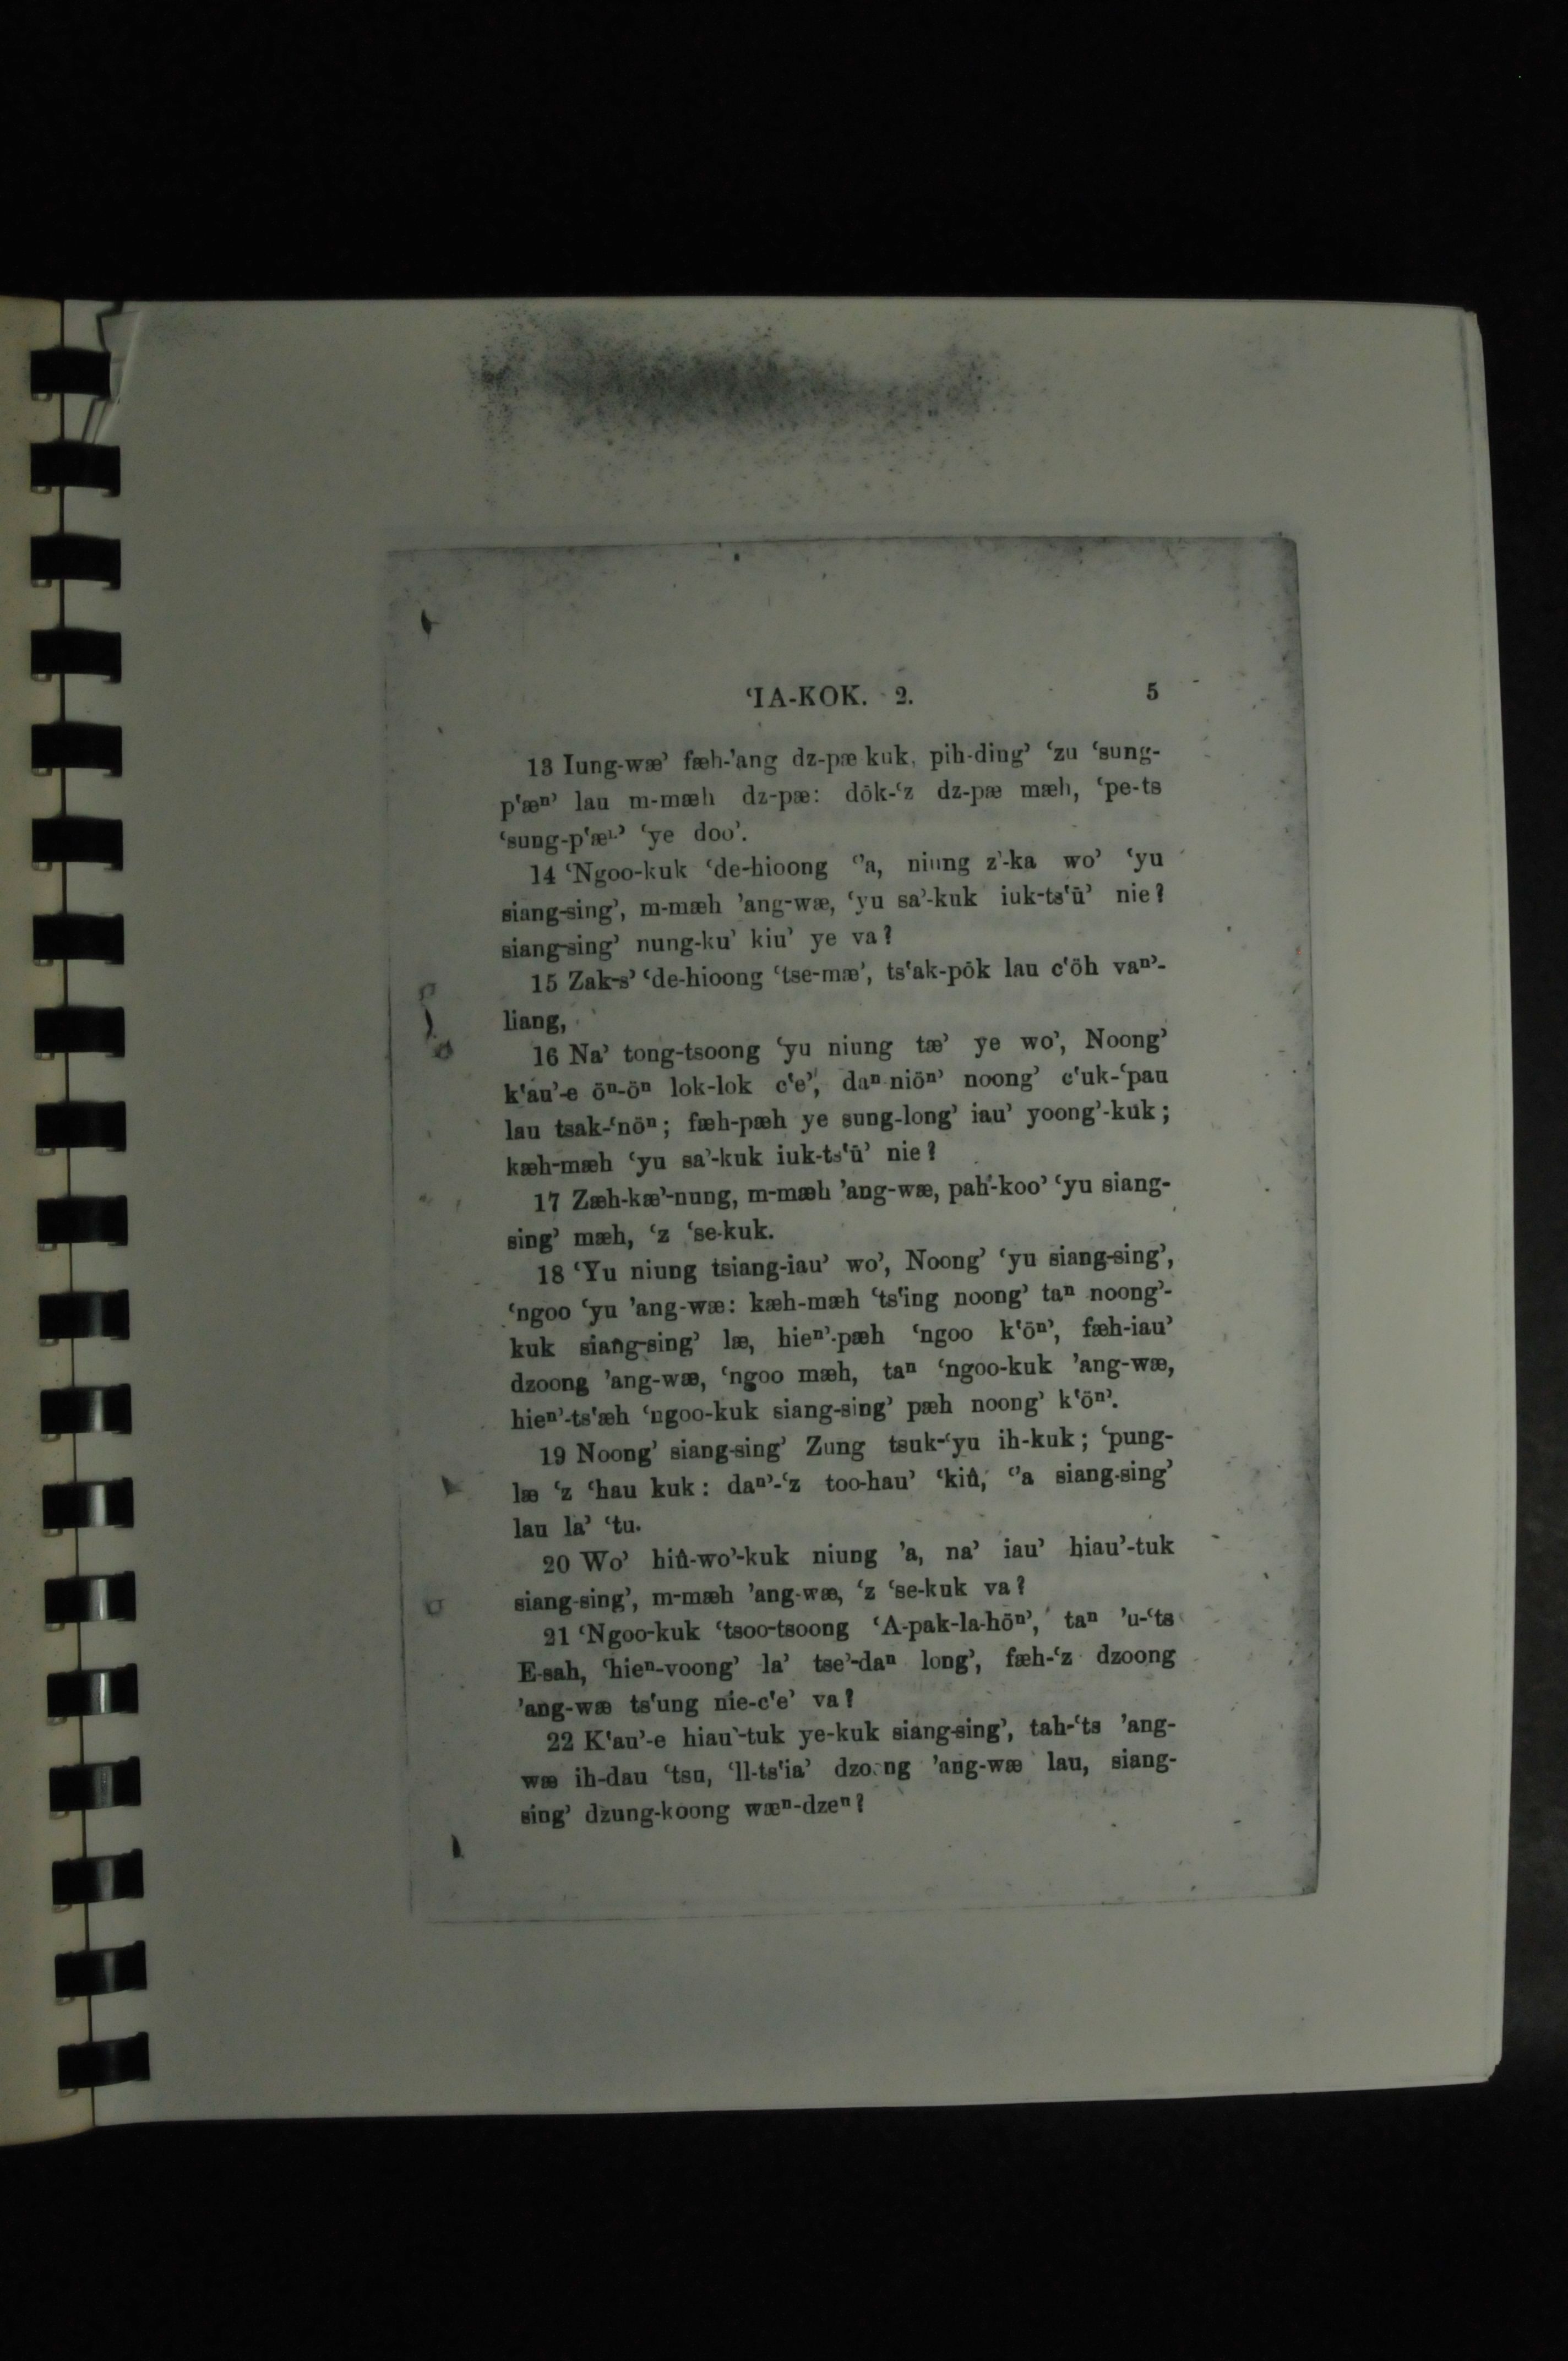 ʻIA-KOK. 2. 5
13 Iung-wæʼ fæh-ʼang dz-pæ kuk, pih-dingʼ ʻzu ʻsung-
pʽæⁿʼ lau m-mæh dz-pæ: dök-ʻz dz-pæ mæh, ʻpe-ts
ʻsung-pʽæⁿʼ ʻye dooʼ.
14 ʻNgoo-kuk ʻde-hioong ʻʼa, niung zʼ-ka woʼ ʻyu
siang-singʼ, m-mæh ʼang-wæ, ʻyu saʼ-kuk iuk-tsʽūʼ nie?
siang-singʼ nung-kuʼ kiuʼ ye va?
15 Zak-sʼ ʻde-hioong ʻtse-mæʼ, tsʽak-pök lau cʽöh vaⁿʼ-
liang,
16 Naʼ tong-tsoong ʻyu niung tæʼ ye woʼ, Noongʼ
kʽauʼ-e öⁿ-öⁿ lok-lok cʽeʼ, daⁿ niöⁿʼ noongʼ cʽuk-ʻpau
lau tsak-ʻnöⁿ; fæh-pæh ye sung-longʼ iauʼ yoongʼ-kuk;
kæh-mæh ʻyu saʼ-kuk iuk-tsʽūʼ nie?
17 Zæh-kæʼ-nung, m-mæh ʼang-wæ, pah-kooʼ ʻyu siang-
singʼ mæh, ʻz ʻse-kuk.
18 ʻYu niung tsiang-iauʼ woʼ, Noongʼ ʻyu siang-singʼ,
ʻngoo ʻyu ʼang-wæ: kæh-mæh ʻtsʽing noongʼ taⁿ noongʼ-
kuk siang-singʼ læ, hieⁿʼ-pæh ʻngoo kʽöⁿʼ, fæh-iauʼ
dzoong ʼang-wæ, ʻngoo mæh, taⁿ ʻngoo-kuk ʼang-wæ,
hieⁿʼ-tsʽæh ʻngoo-kuk siang-singʼ pæh noongʼ kʽöⁿʼ.
19 Noongʼ siang-singʼ Zung tsuk-ʻyu ih-kuk; ʻpung-
læ ʻz ʻhau kuk: daⁿʼ-ʻz too-hauʼ ʻkiû, ʻʼa siang-singʼ
lau laʼ ʻtu.
20 Woʼ hiû-woʼ-kuk niung ʼa, naʼ iauʼ hiauʼ-tuk
siang-singʼ, m-mæh ʼang-wæ, ʻz ʻse-kuk va?
21 ʻNgoo-kuk ʻtsoo-tsoong ʻA-pak-la-höⁿʼ, taⁿ ʼu-ʻts
E-sah, ʻhieⁿ-voongʼ laʼ tseʼ-daⁿ longʼ, fæh-ʻz dzoong
ʼang-wæ tsʽung nie-cʽeʼ va?
22 Kʽauʼ-e hiauʼ-tuk ye-kuk siang-singʼ, tah-ʻts ʼang-
wæ ih-dau ʻtsu, ʻll-tsʽiaʼ dzoong ʼang-wæ lau, siang-
singʼ dzung-koong wæⁿ-dzeⁿ?